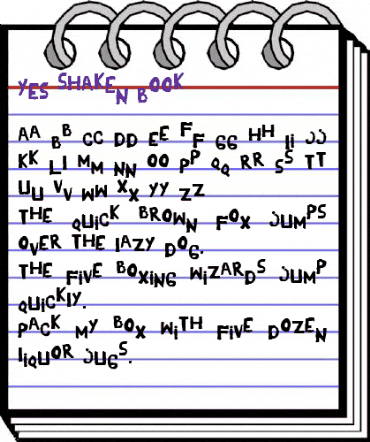 YES SHAKEN BOOK
AA BB CC DD EE FF GG HH II JJ
KK LL MM NN OO PP QQ RR SS TT
UU VV WW XX YY ZZ
THE QUICK BROWN FOX JUMPS
OVER THE LAZY DOG.
THE FIVE BOXING WIZARDS JUMP
QUICKLY.
PACK MY BOX WITH FIVE DOZEN
LIQUOR JUGS.